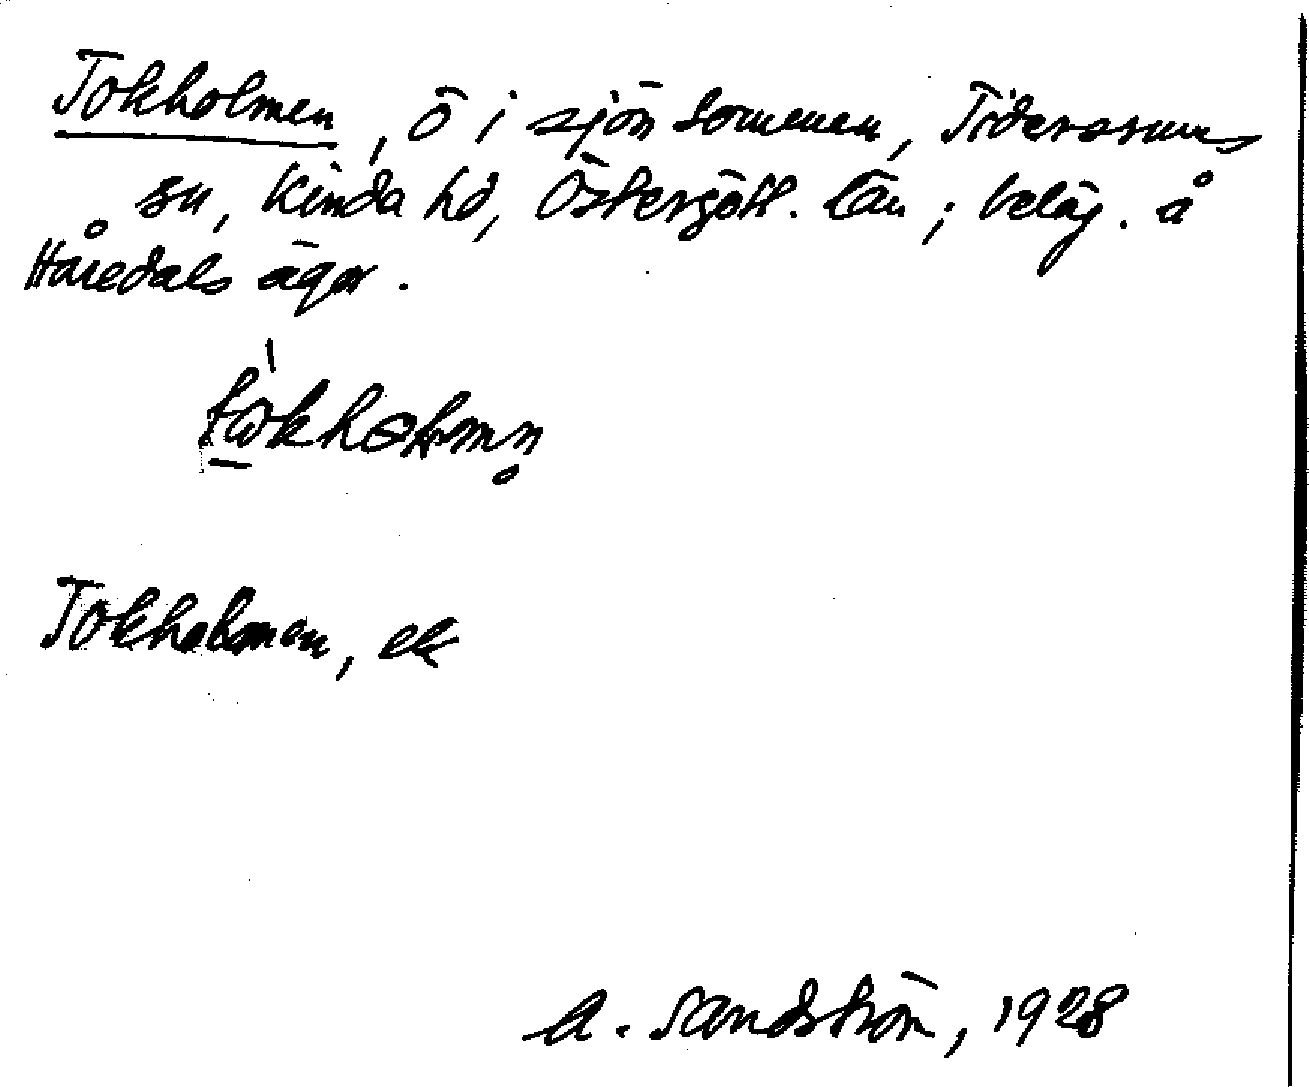 Tokholmen, ö i sjön Sommen, Tidersrums
sn, Kinda hd, Östergötl. län; beläg. å
Håredals ägor.
tɷkholmn̥
Tokholmen, ek
A. Sandström, 1928